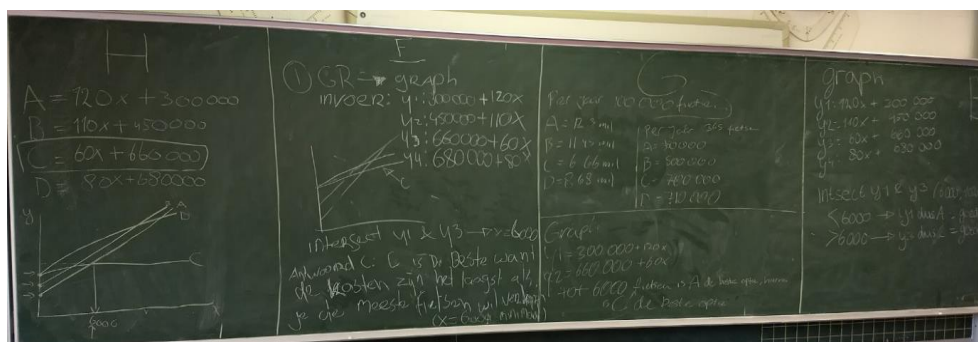 H
A = 120x + 300000
B = 110x + 450000
C = 60x + 660000
D = 80x + 680000
y
A
D
C
x
F
① GR → graph
invoer: y1: 300000 + 120x
y2: 450000 + 110x
y3: 660000 + 60x
y4: 680000 + 80x
C
intersect y1 & y3 → x = 6000
Antwoord C. C is De Beste want
de kosten zijn het laagst als
je de meeste fietsen wil verkopen
G
Per jaar 100 000 fietsen
A = 12.3 mil
B = 11.45 mil
C = 6.66 mil
D = 8,68 mil
Per jaar fietsen
C = 700.000
D = 710.000
= 300.000 + 120x
= 660.000 + 60x
tot 6000 fietsen is A de beste optie,
C de beste optie
graph
y1 = 120x + 300 000
y2 = 110x + 450 000
y3 = 60x + 660 000
y4 = 80x + 680 000
Intsect y1 & y3
<6000 → y1 dus A
>6000 → y3 dus C